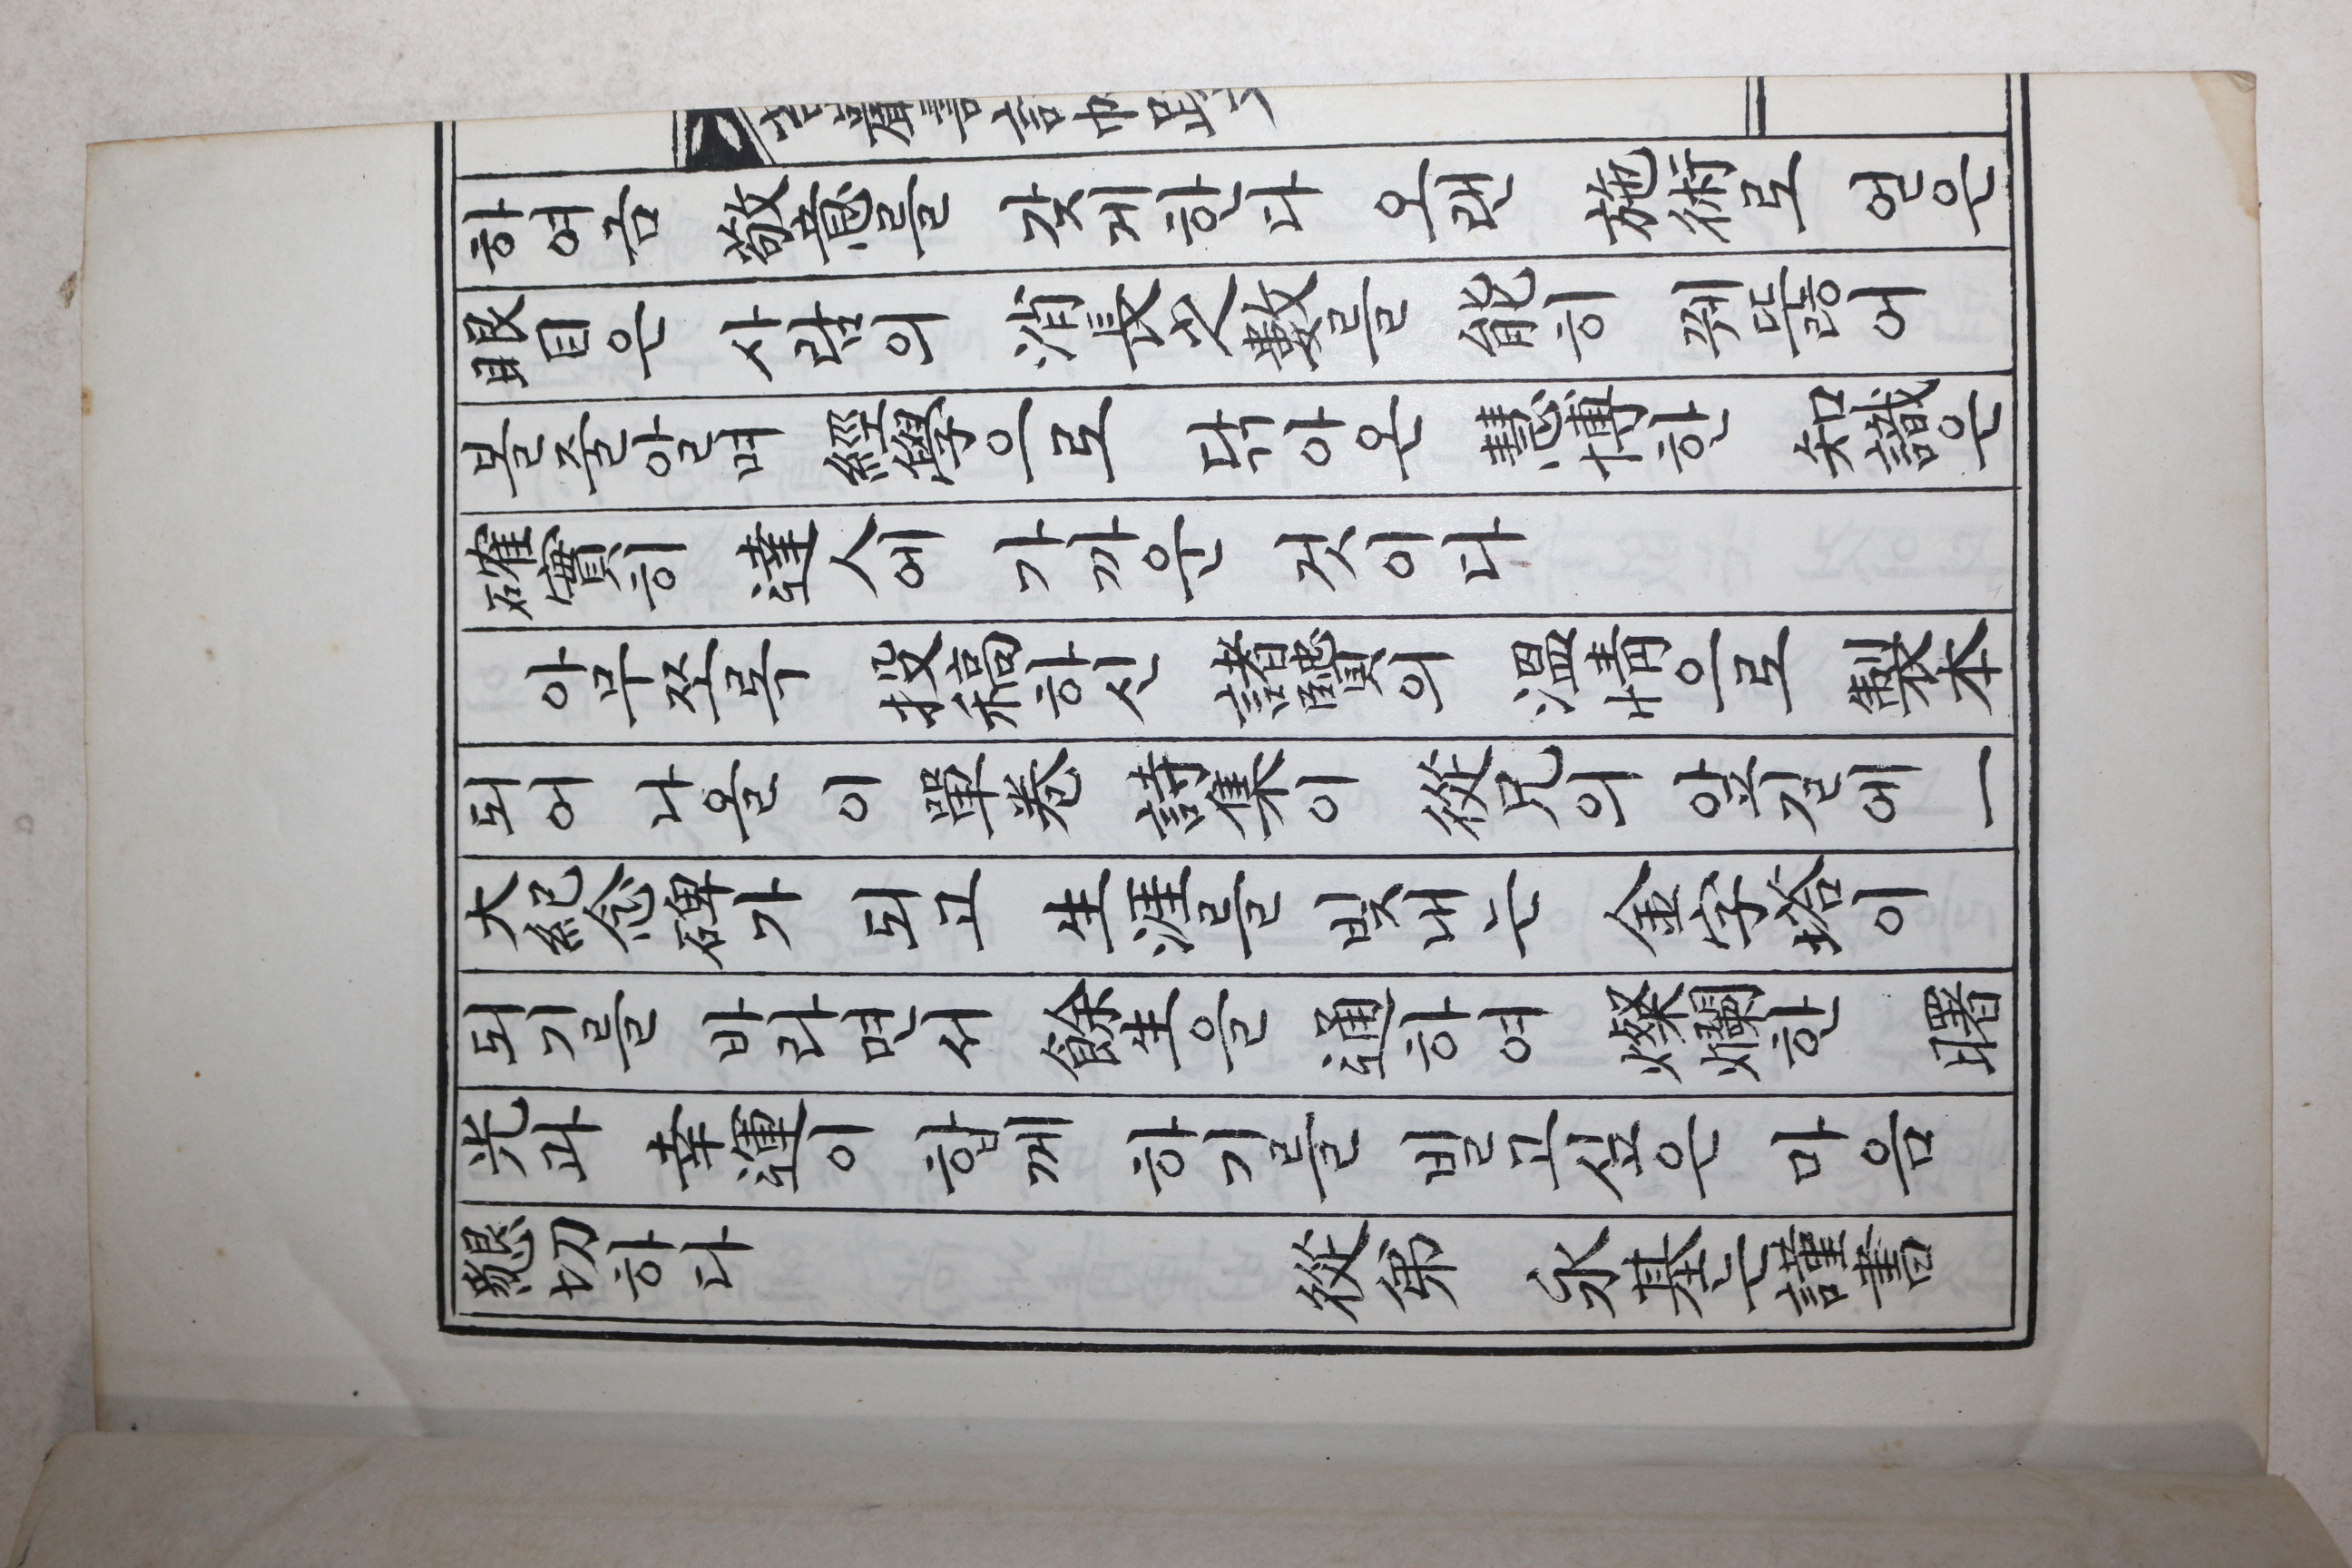 하여금 敬意를 갖게한다 오랜 施術로 얻은
眼目은 사람의 消長少數를 能히 꿰뚫어
볼줄알며 經學으로 닦아온 慧博한 知識은
確實히 達人에 가까운 것이다
아무쪼록 投稿하신 諸賢의 溫情으로 製本
되어 나올 이 單卷 詩集이 從兄의 앞길에 一
大紀念碑가 되고 生涯를 빛내는 金字塔이
되기를 바라면서 餘生을 通하여 燦爛한 曙
光과 幸運이 합께 하기를 빌고싶은 마음
懇切하다 從弟 永基는謹書